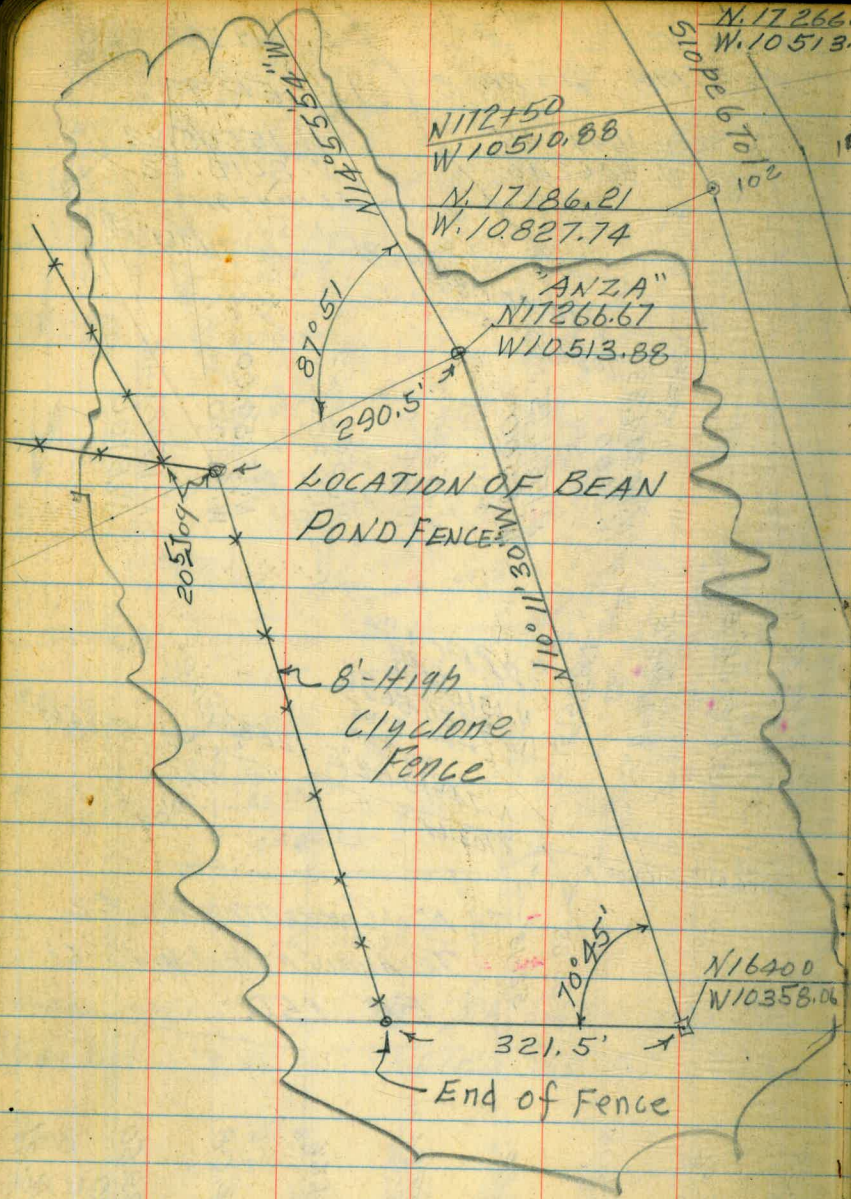 N. 17266.
W. 10513.
Slope 6 To 1
N14°55'54"W
N172+50
W10510.88
N. 17186.21
W. 10827.74
"ANZA"
N17266.67
W10513.88
87°51
290.5'
LOCATION OF BEAN
POND FENCE
N10°11'30"W
8'-High
Clyclone
Fence
70°45'
N16400
W10358.06
321.5'
End of Fence